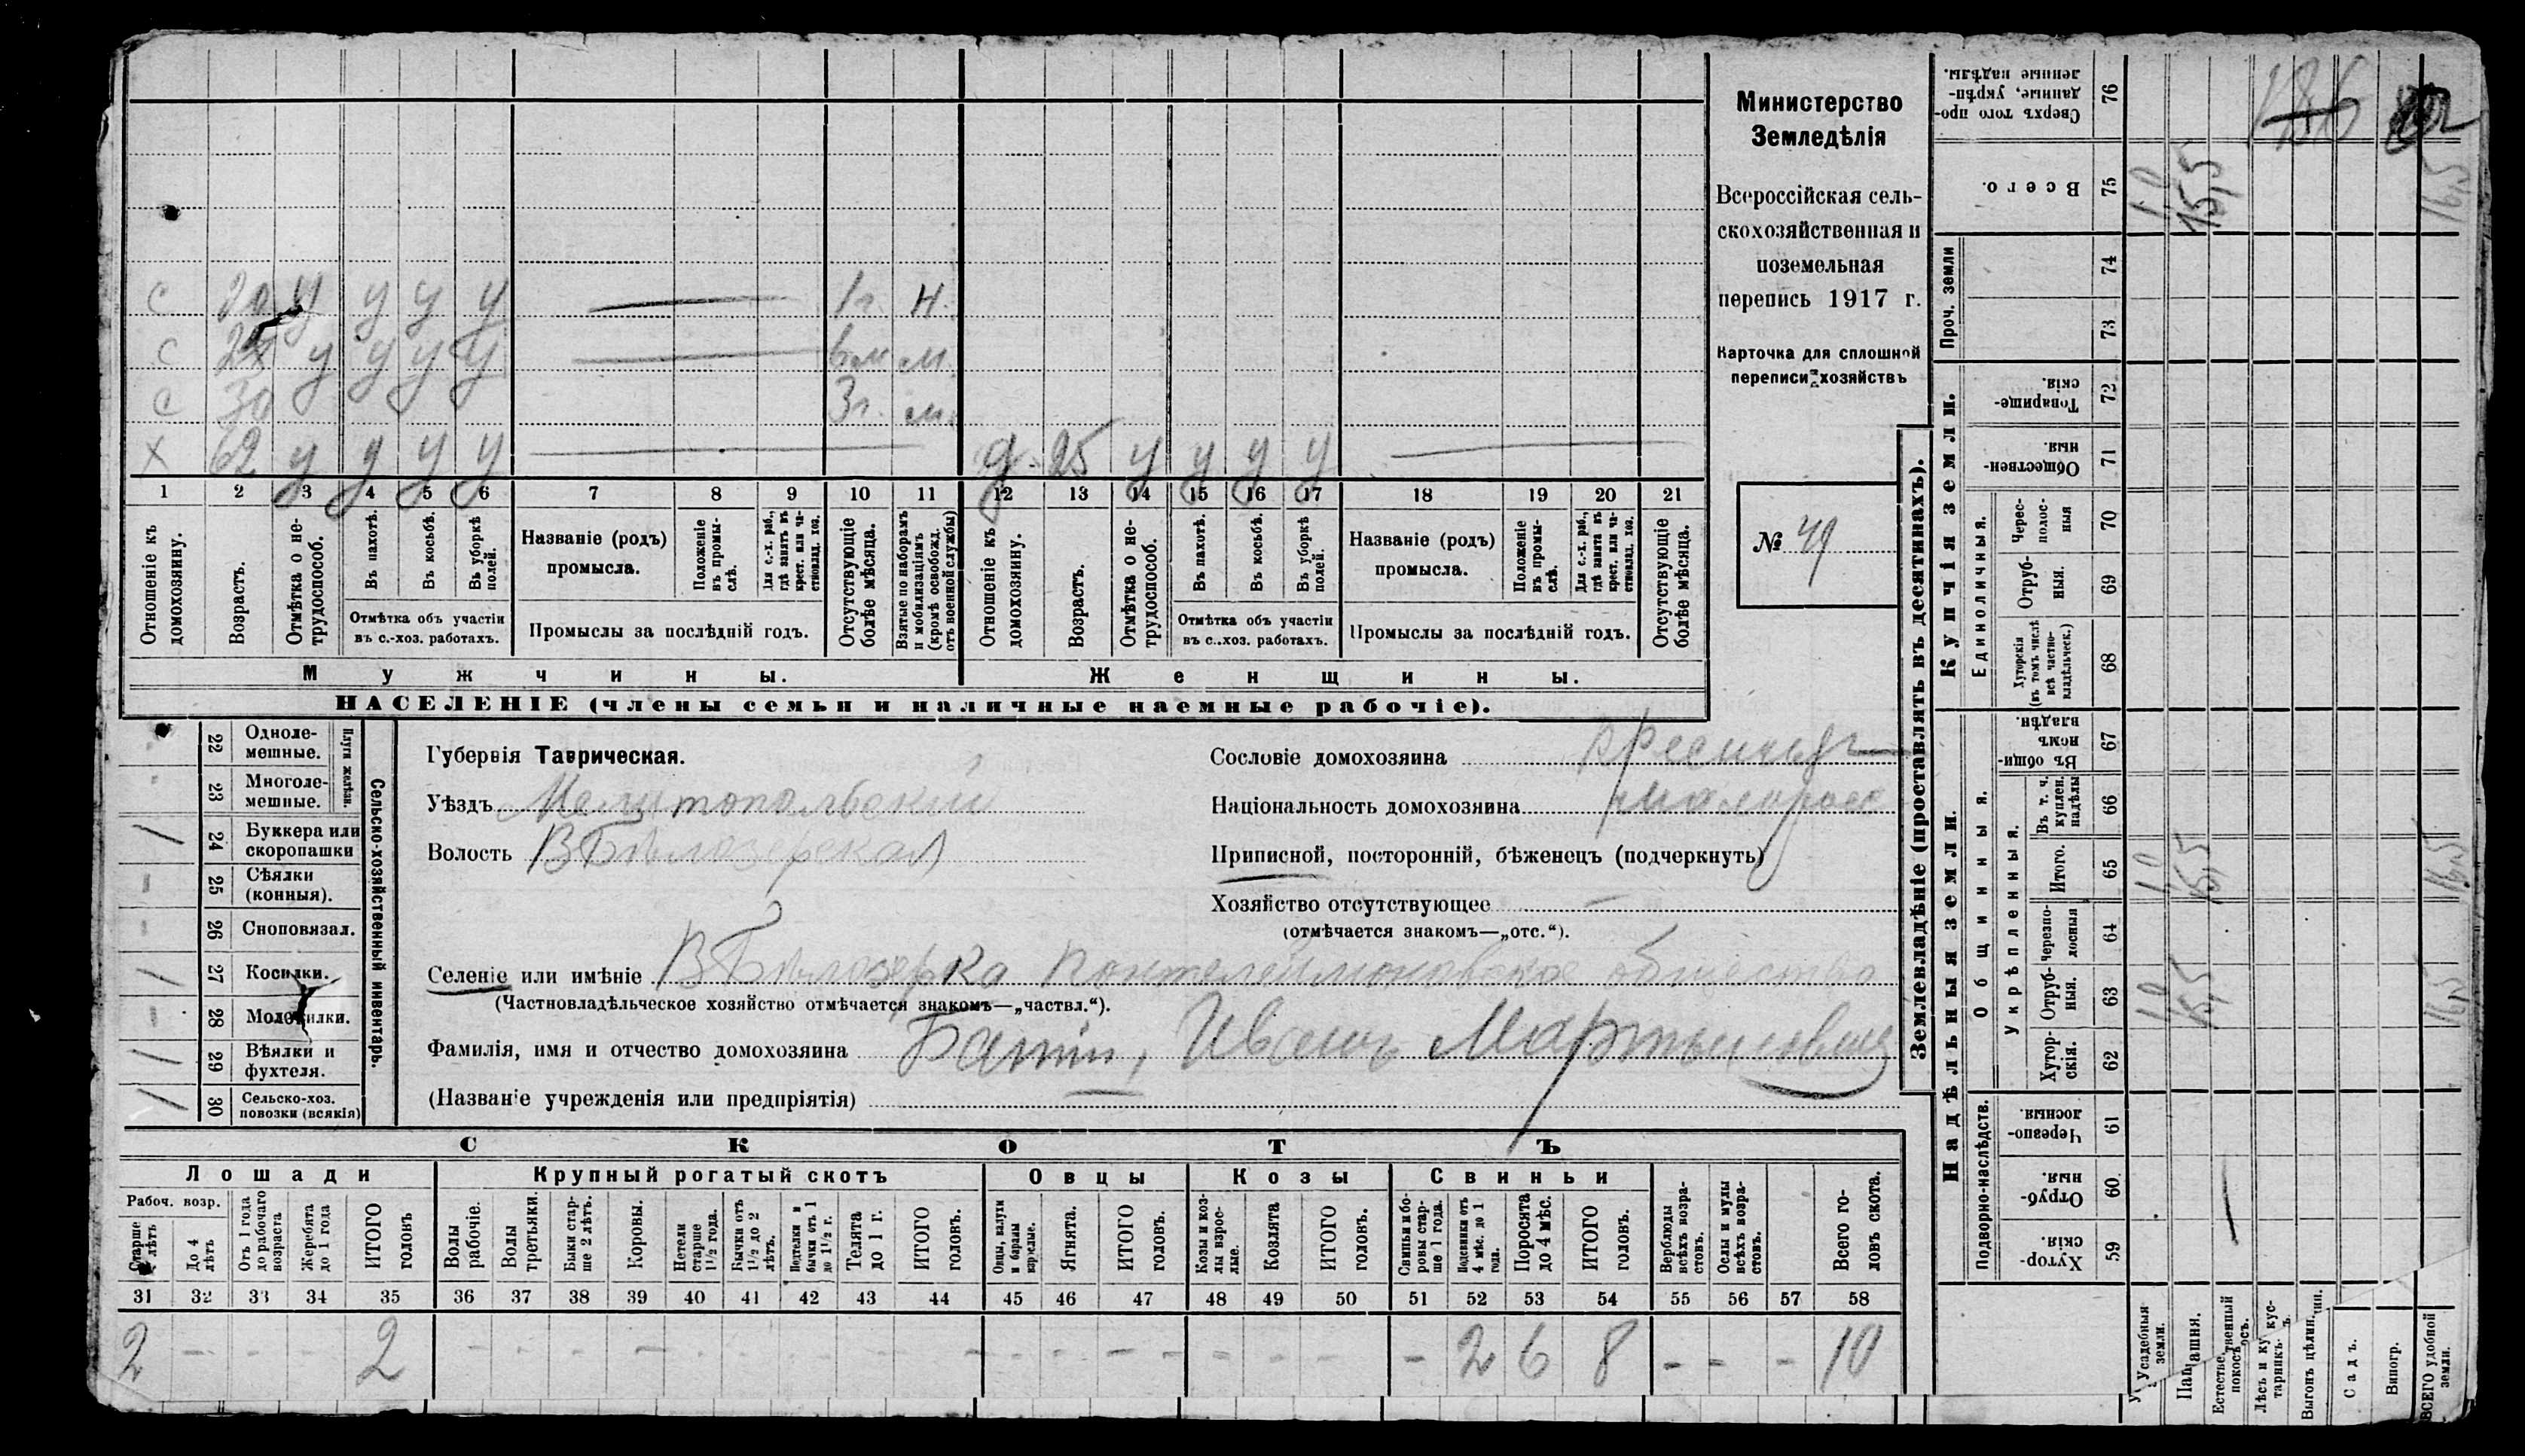 Министерство
Земледѣлія
Всероссійская сель-
скохозяйственная и
поземельная
перепись 1917 г.
Карточка для сплошной
переписи хозяйствъ
№ 49
с 20 у у у у 1г. н.
с у у у у 6м м.
с 30 3г. м.
х 62 у у у у д. 25 у у у у
1 2 3 4 5 6 7 8 9 10 11 12 13 14 15 16 17 18 19 20 21
Отношеніе къ домохозяину.
Возрастъ.
Отмѣтка о не-трудоспособ.
Въ пахотѣ.
Въ косьбѣ.
Въ уборкѣ полей.
Отмѣтка объ участіи
въ с.-хоз. работахъ.
Названіе (родъ)
промысла.
Положеніе въ промы-слѣ.
Для с.-х. раб., гдѣ занятъ въ крест. или ча-стновлад. хоз.
Промыслы за послѣдній годъ.
Отсутствующіе болѣе мѣсяца.
Взятые по наборамъ и мобилизаціямъ (кромѣ освобожд. отъ военной службы)
Отношеніе къ домохозяину.
Возрастъ.
Отмѣтка о не-трудоспособ.
Въ пахотѣ.
Въ косьбѣ.
Въ уборкѣ полей.
Отмѣтка объ участіи
въ с.-хоз. работахъ.
Названіе (родъ)
промысла.
Положеніе въ промы-слѣ.
Для с.-х. раб., гдѣ занята въ крест. или ча-стновлад. хоз.
Промыслы за послѣдній годъ.
Отсутствующіе болѣе мѣсяца.
Мужчины. Женщины.
НАСЕЛЕНІЕ (члены семьи и наличные наемные рабочіе).
Сельско-хозяйственный инвентарь.
Плуги желѣзн.
22 Одноле-мешные.
- 23 Многоле-мешные.
/ 24 Буккера или скоропашки
- 25 Сѣялки (конныя).
- 26 Сноповязал.
/ 27 Косилки.
- 28 Молотилки.
/ / 29 Вѣялки и фухтеля.
/ / 30 Сельско-хоз. повозки (всякія)
Губернія Таврическая.
Уѣздъ Мелитопольскій
Волость В Бѣлозерская
Сословіе домохозяина
Національность домохозяина малоросс
Приписной, посторонній, бѣженецъ (подчеркнуть)
Хозяйство отсутствующее —
(отмѣчается знакомъ—„отс.“).
Селеніе или имѣніе В Бѣлозерка Пантелеймоновское общество
(Частновладѣльческое хозяйство отмѣчается знакомъ—„частвл.“).
Фамилія, имя и отчество домохозяина Иванъ Мартыновичъ
(Названіе учрежденія или предпріятія)
СКОТЪ
Лошади Крупный рогатый скотъ Овцы Козы Свиньи
Рабоч. возр.
Старше 4 лѣтъ
До 4 лѣтъ
Отъ 1 года до рабочаго возраста
Жеребята до 1 года
ИТОГО головъ
Волы рабочіе.
Волы третьяки.
Быки стар-ше 2 лѣтъ.
Коровы.
Нетели старше 1½ года.
Бычки отъ 1½ до 2 лѣтъ.
Нетелки и бычки отъ 1 до 1½ г.
Телята до 1 г.
ИТОГО головъ.
Овцы, валухи и бараны взрослые.
Ягнята.
ИТОГО головъ.
Козы и коз-лы взрос-лые.
Козлята
ИТОГО головъ.
Свиньи и бо-ровы стар-ше 1 года.
Подсвинки отъ 4 мѣс. до 1 года.
Поросята до 4 мѣс.
ИТОГО головъ.
Верблюды всѣхъ возра-стовъ.
Ослы и мулы всѣхъ возра-стовъ.
Всего го-ловъ скота.
31 32 33 34 35 36 37 38 39 40 41 42 43 44 45 46 47 48 49 50 51 52 53 54 55 56 57 58
2 - - - 2 - - - - - - - - - - - - - - - - 2 6 8 - - - 10
Землевладѣніе (проставлять въ десятинахъ).
Надѣльныя земли. Купчія земли.
Проч. земли
Подворно-наслѣдств.
Общинныя.
Укрѣпленныя.
Единоличныя.
59 Хутор-скія.
60 Отруб-ныя.
61 Черезпо-лосныя.
62 Хутор-скія.
63 Отруб-ныя. 1,0 15,5 16,5
64 Черезпо-лосныя
65 Итого. 1,0 15,5 16,5
66 Въ т. ч. куплен. надѣлы
67 Въ общи-номъ владѣн.
68 Хуторскія (въ томъ числѣ всѣ частно-владѣльческ.)
69 Отруб-ныя.
70 Черес-полос-ныя
71 Обществен-ныя
72 Товарище-скія.
73
74
75 Всего. 1,0 15,5 16,5
76 Сверхъ того про-данные, укрѣп-ленные надѣлы.
Усадебныя земли.
Пашня.
Естественный покосъ.
Лѣсъ и кус-тарникъ.
Выгонъ цѣлин.
Садъ.
Виногр.
ВСЕГО удобной земли.